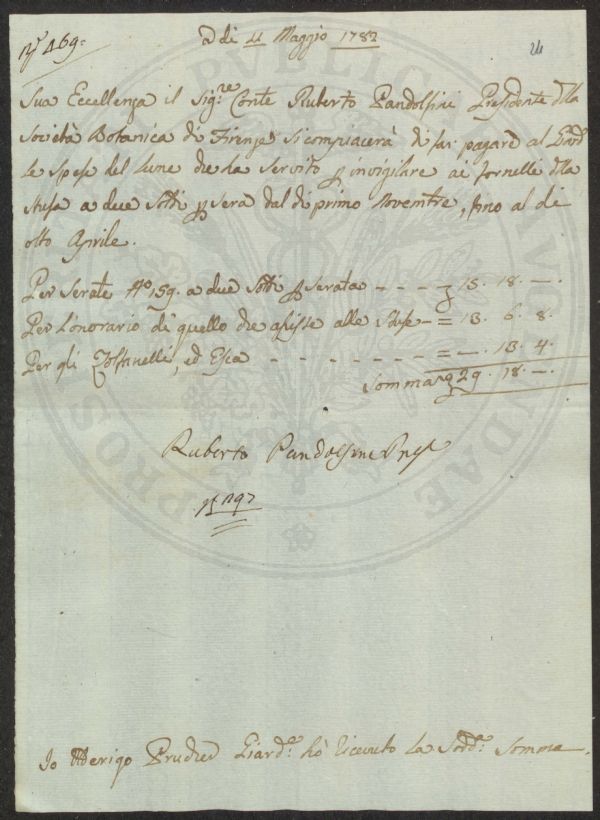 N.º 469.
A di 11 Maggio 1783
24
Sua Eccellenza il Sig.re Conte Ruberto Pandolfini Presidente dlla
Società Botanica di Firenze si compiacerà di far pagare al Giard.
le spese del lume che ha servito p invigilare ai fornelli dlla
stufa a due soldi p sera dal di primo Novembre, fino al di
otto Aprile.
Per Serate No 159. a due soldi p serata - - - - 15. 18. —.
Per l'onorario di quello che assiste alle stufe - = 13. 6. 8.
Per gli Zolfanelli, ed Esca - - - - - - - - = —. 13. 4.
Somma 29. 18. —.
Ruberto Pandolfini Pres.
PROSPERITATI PUBLICAE
Io Arrigo Giard.e hò ricevuto la Sud.a Somma